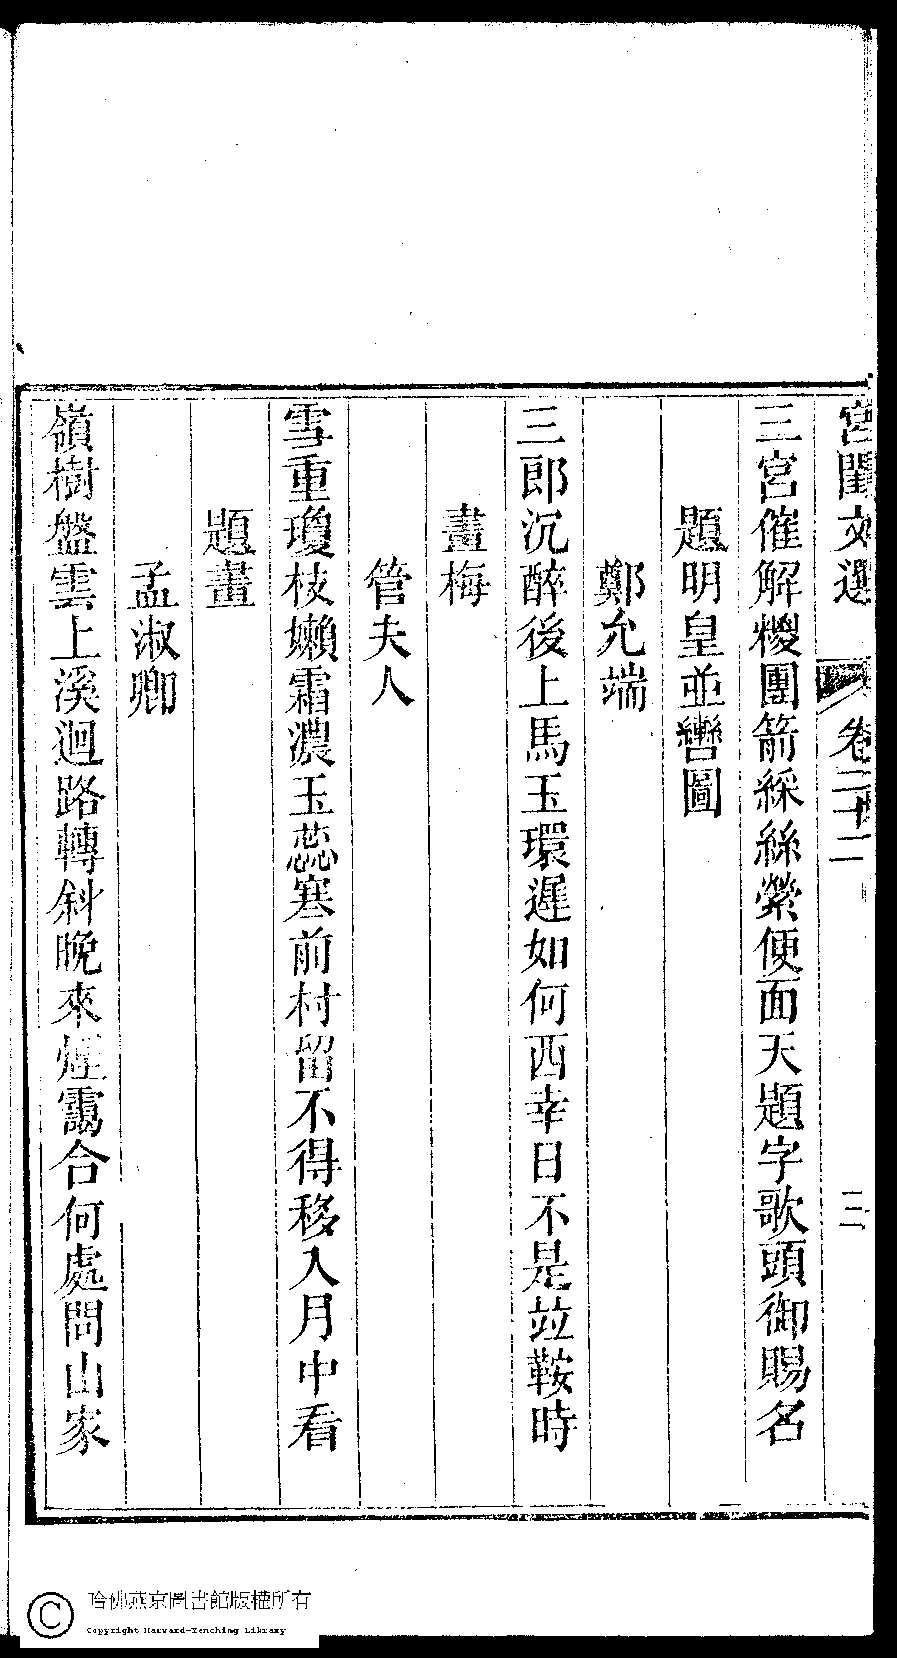 宮閨文選 卷二十二 三
三宮催解糉團箭綵絲縈便面天題字歌頭御賜名
題明皇並轡圖
鄭允端
三郎沉醉後上馬玉環遲如何西幸日不是竝鞍時
畫梅
管夫人
雪重瓊枝嬾霜濃玉蕊寒前村留不得移入月中看
題畫
孟淑卿
嶺樹盤雲上溪迴路轉斜晚來煙靄合何處問山家
哈佛燕京圖書館版權所有
Copyright Harvard-Yenching Library